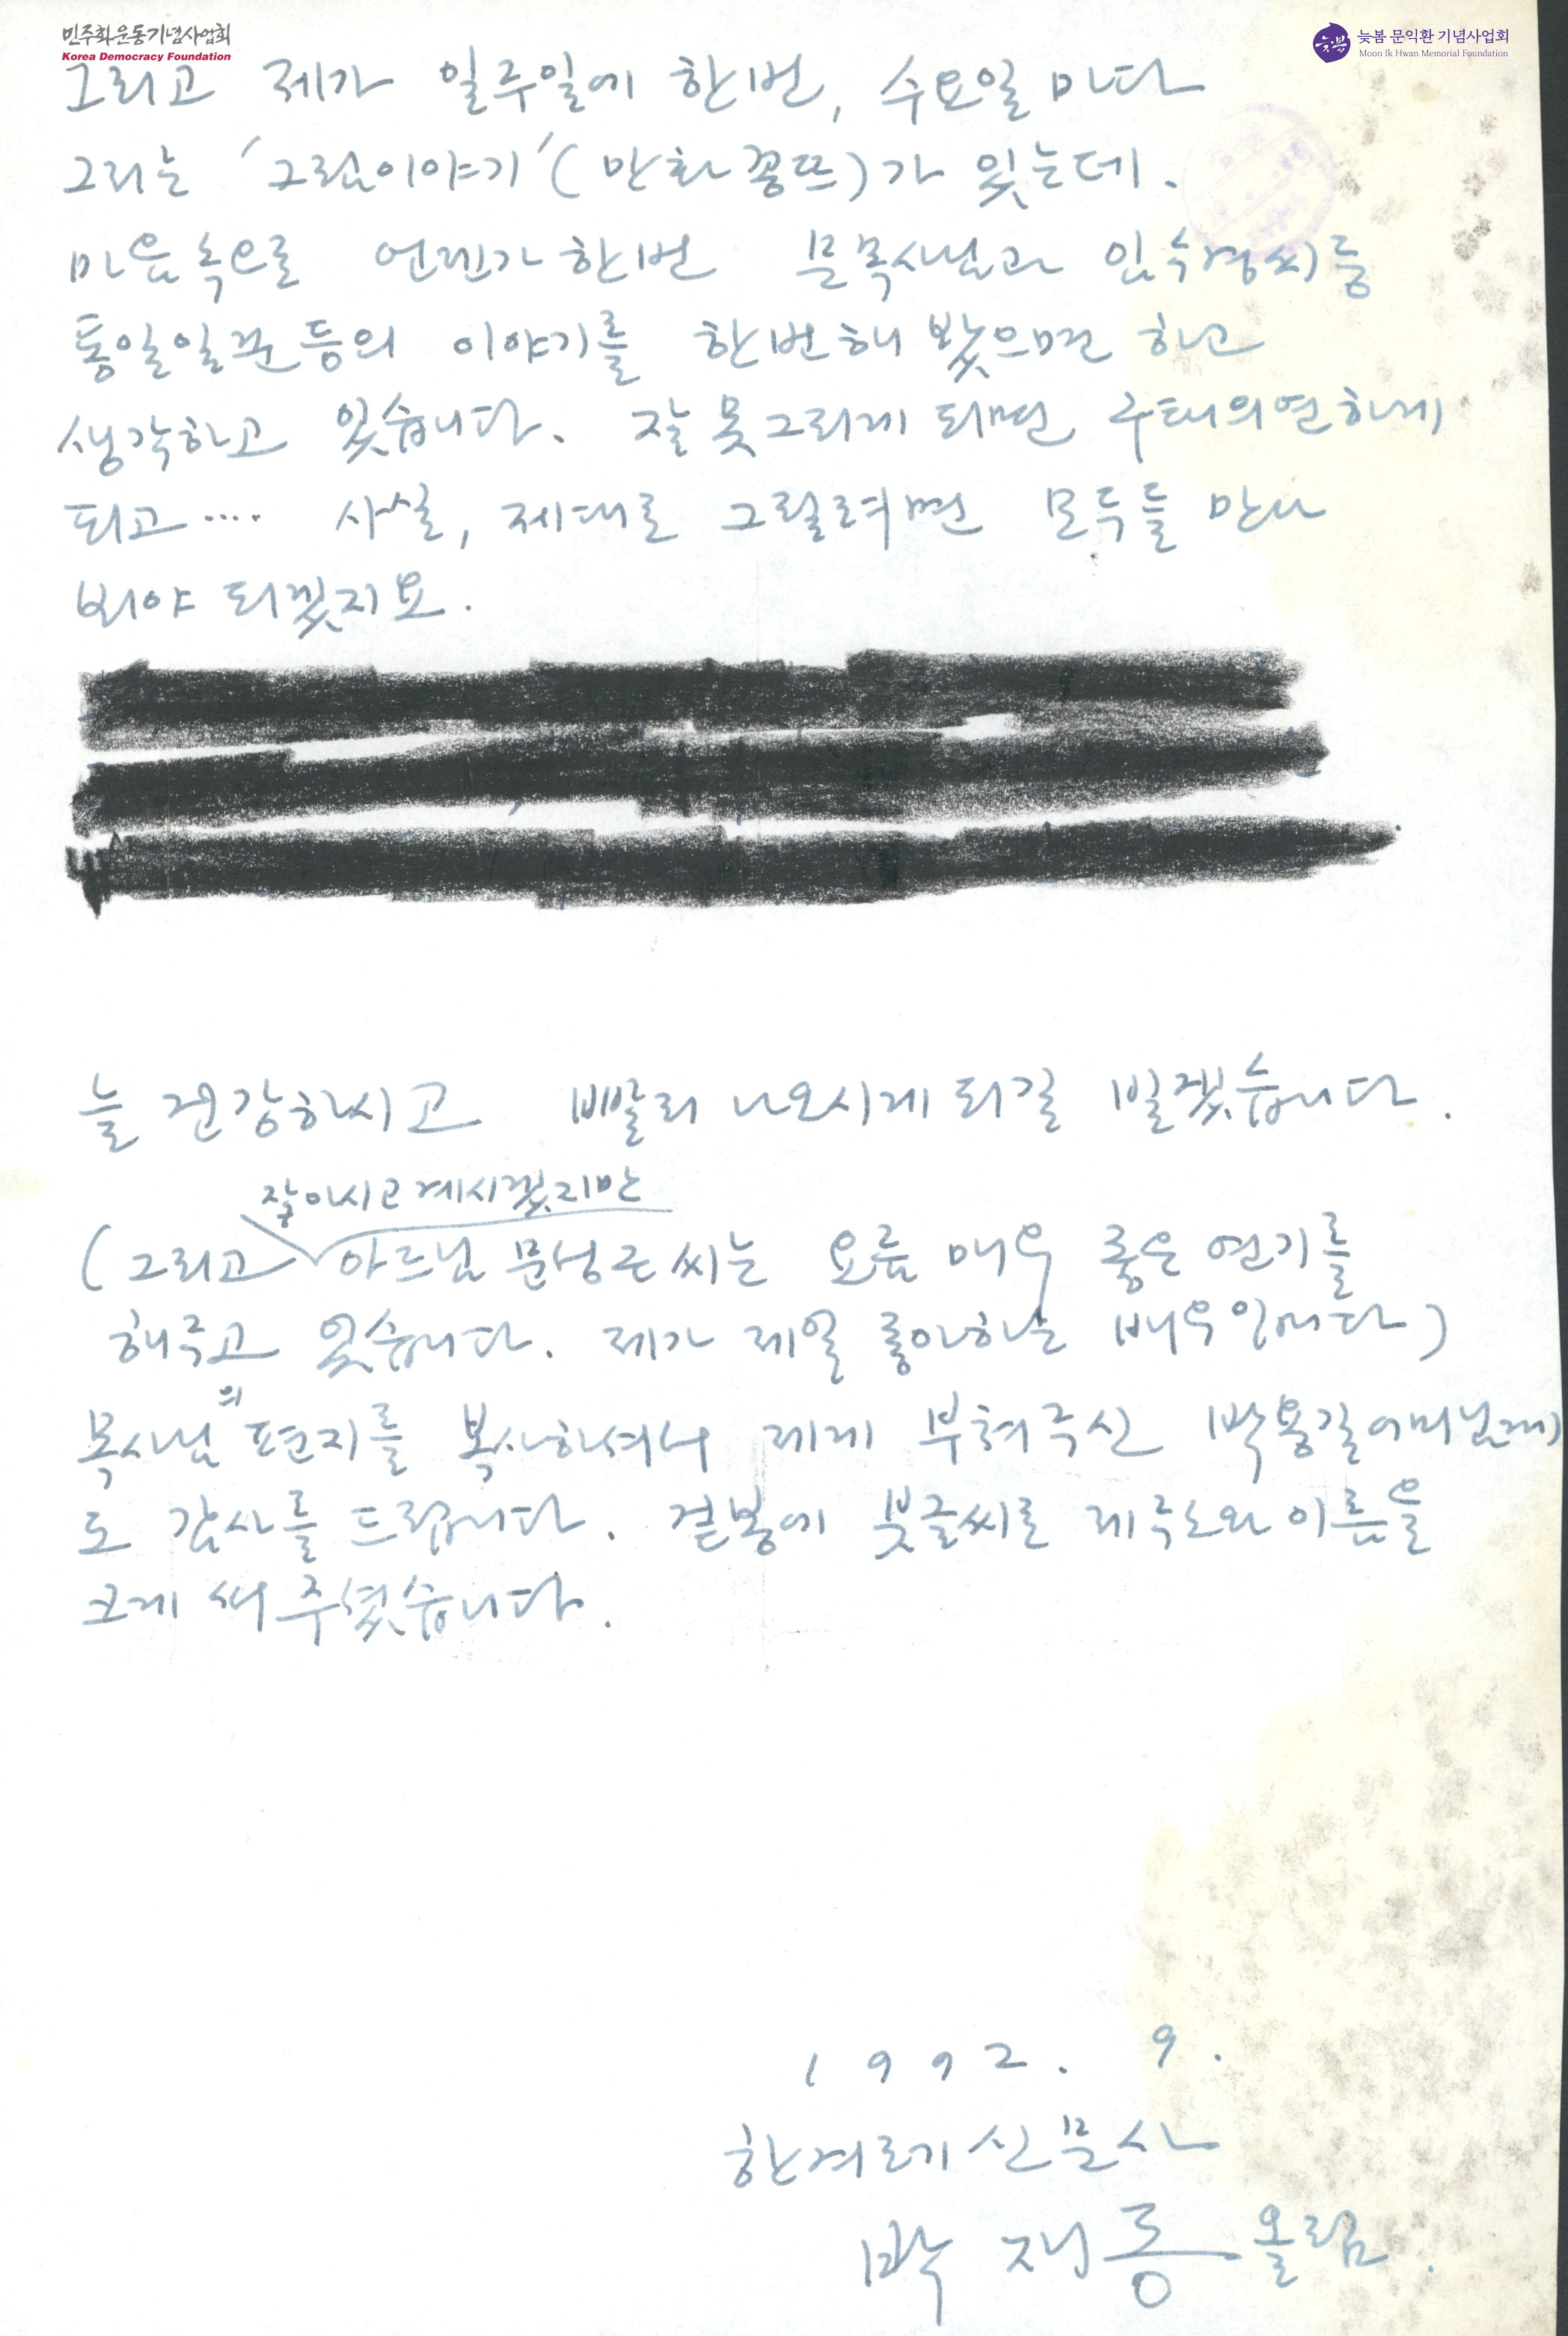 민주화운동기념사업회
Korea Democracy Foundation
늦봄
늦봄 문익환 기념사업회
Moon Ik Hwan Memorial Foundation
그리고 제가 일주일에 한번, 수요일 마다
그리는 '그림이야기'(만화꽁뜨)가 있는데.
마음속으로 언젠가 한번 문목사님과 임수경씨등
통일일꾼 등의 이야기를 한번 해 봤으면 하고
생각하고 있습니다. 잘 못그리게 되면 구태의연하게
되고.... 사실, 제대로 그릴려면 모두들 만나
봐야 되겠지요.
늘 건강하시고 빨리 나오시게 되길 빌겠습니다.
잘아시고계시겠지만
(그리고 아드님 문성근씨는 요즘 매우 좋은 연기를
해주고 있습니다. 제가 제일 좋아하는 배우입니다)
목사님의 편지를 복사하셔서 제게 부쳐주신 박용길어머님께
도 감사를 드립니다. 겉봉에 붓글씨로 제주소와 이름을
크게 써 주셨습니다.
1992. 9.
한겨레신문사
박재동 올림.